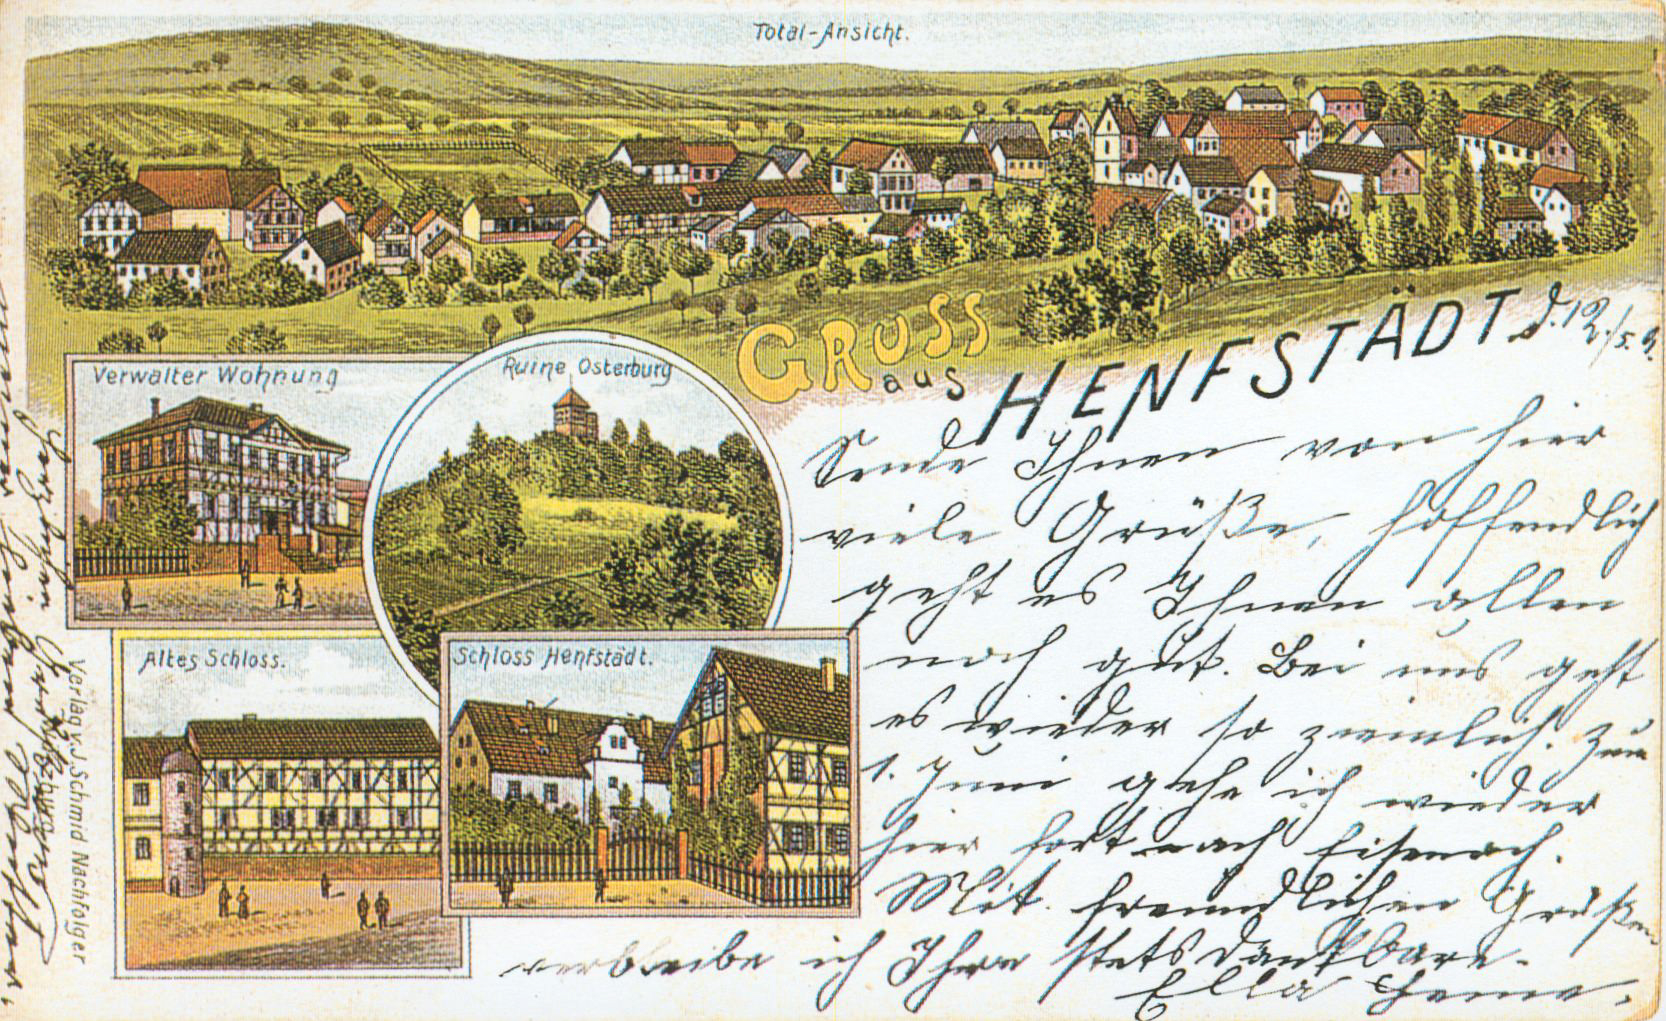 Total-Ansicht.
Gruss
aus
HENFSTÄDT
Verwalter Wohnung
Ruine Osterburg
Altes Schloss.
Schloss Henfstädt.
Verlag v. J. Schmid Nachfolger
Sende Ihnen von hier
viele Grüße, hoffendlich
geht es Ihnen allen
noch gut. Bei uns geht
es wieder so ziemlich. Zum
1. Juni gehe ich wieder
hier fort nach Eisenach.
Mit freundlichen Grüßen
verbleibe ich Ihre stets dankbare
Ella